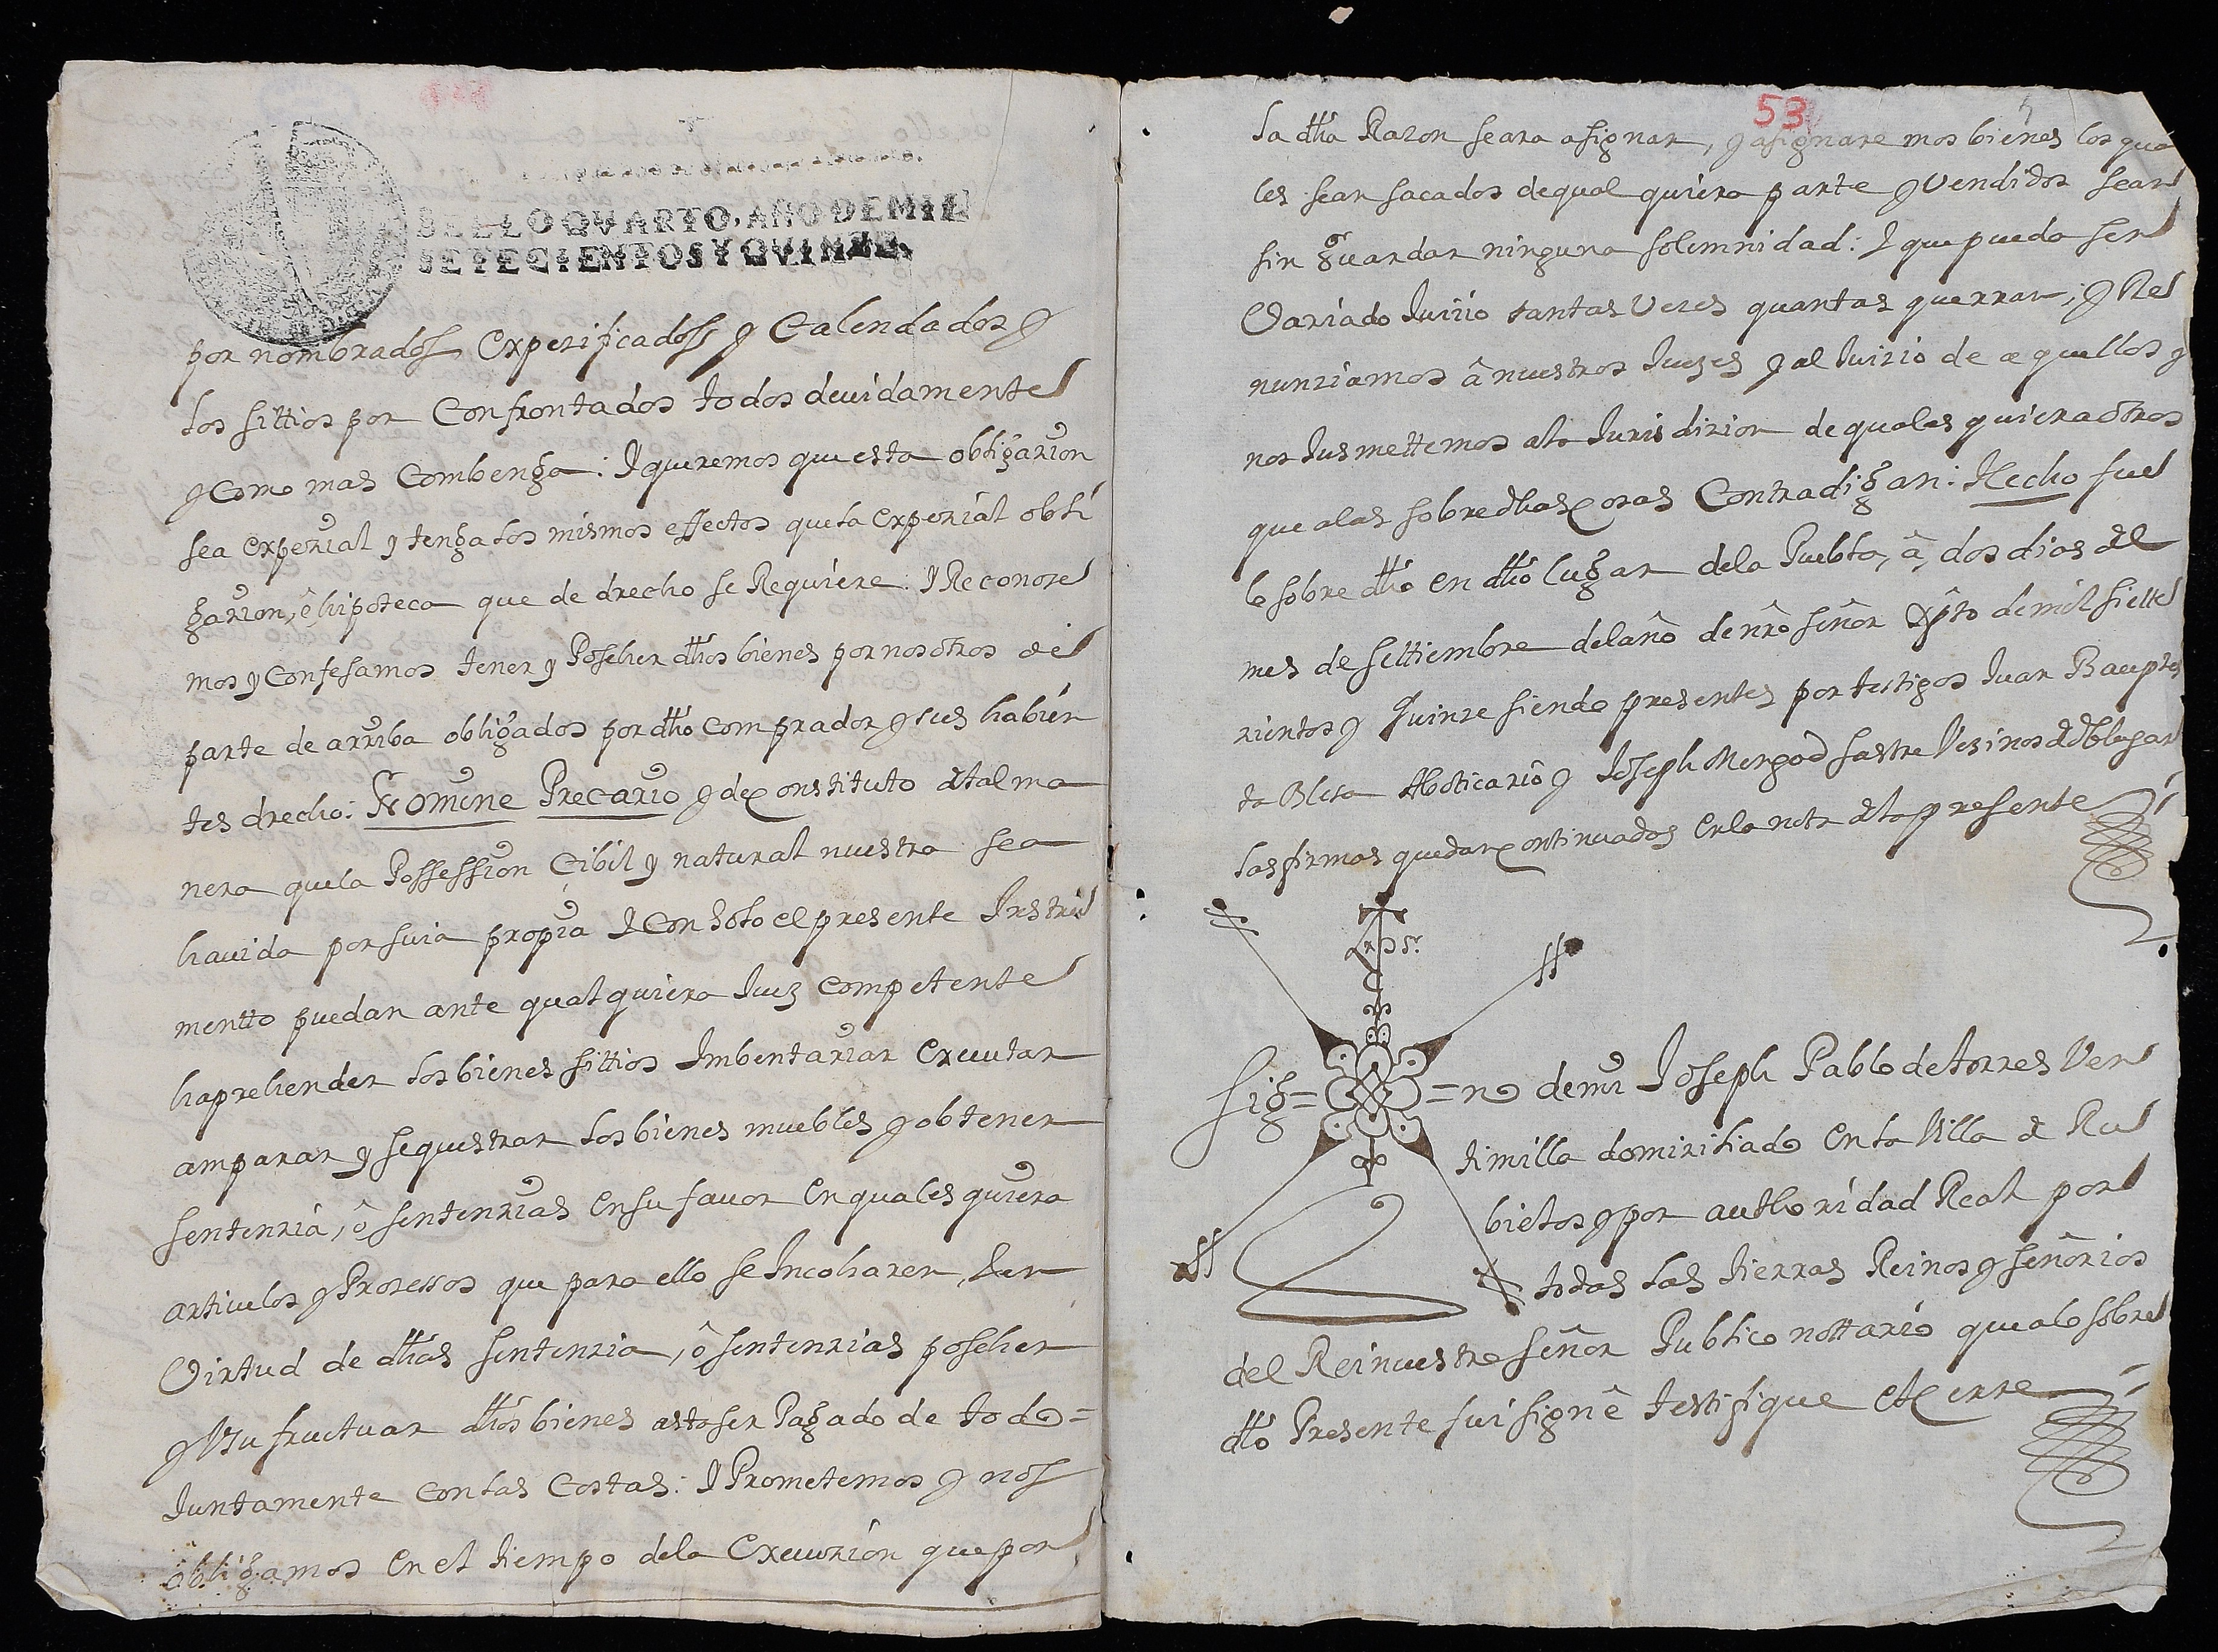 SELLO QVARTO, AÑO DE MIL
SETECIENTOS Y QVINZE.
por nombrados experificados y Calendados y
los sittios por Confrontados todos deuidamente
y como mas Combenga: Y queremos que esta obligaçion
sea experial y tenga los mismos effectos que la experial obli
gaçion, ê hipoteca que de drecho se Requiere: Y Reconoce
mos y Confesamos tener y Poseher dhos bienes por nosotros de
parte de arriba obligados por dho comprador y sus habien
tes drecho: Nomine Precario y de constituto de tal ma
nera que la Possession Cibil y natural nuestra sea
hauida por suia propia Y con solo el presente Instru
mentto puedan ante qual quiera Juez competente
haprehender los bienes sittios Imbentariar executar
amparar y sequestrar los bienes muebles y obtener
sentençia, ô sentençias en su fauor en quales quiera
articulos y Proçessos que para ello se Incoharen, Y en
Virtud de dhas sentençia, ô sentençias poseher
y Vsufructuar dhos bienes asta ser Pagado de todo=
Juntamente con las costas: Y Prometemos y nos
obligamos en el tiempo de la execuçion que por
53
la dha Razon se ara asignar, y asignaremos bienes los qua
les sean sacados de qual quiera parte y Vendidos sean
sin guardar ninguna solemnidad: Y que pueda ser
Variado Juiçio tantas Veces quantas querran; y Re
nunziamos â nuestros Juezes y al Juiçio de aquellos y
nos Jusmettemos a la Jurisdiçion de quales quiera otros
que a las sobredhas cosas Contradigan: Hecho fue
lo sobre dho en dho lugar de la Puebla, â, dos dias del
mes de settiembre del año de nro señor Xpto de mil siette
çientos y Quinze siendo presentes por testigos Juan Baupt
ta Blesa Aboticario y Joseph Mengod sastre Vezinos de dho lugar
las firmas quedan continuadas en la nota de la presente
Sig= =no de mi Joseph Pablo de torres Ver
timilla domiçiliado en la Villa de Ru
bielos y por authoridad Real por
todas las tierras Reinos y señorios
del Rei nuestro señor Publico nottario que a lo sobre
dho Presente fui signê testifique et cerre